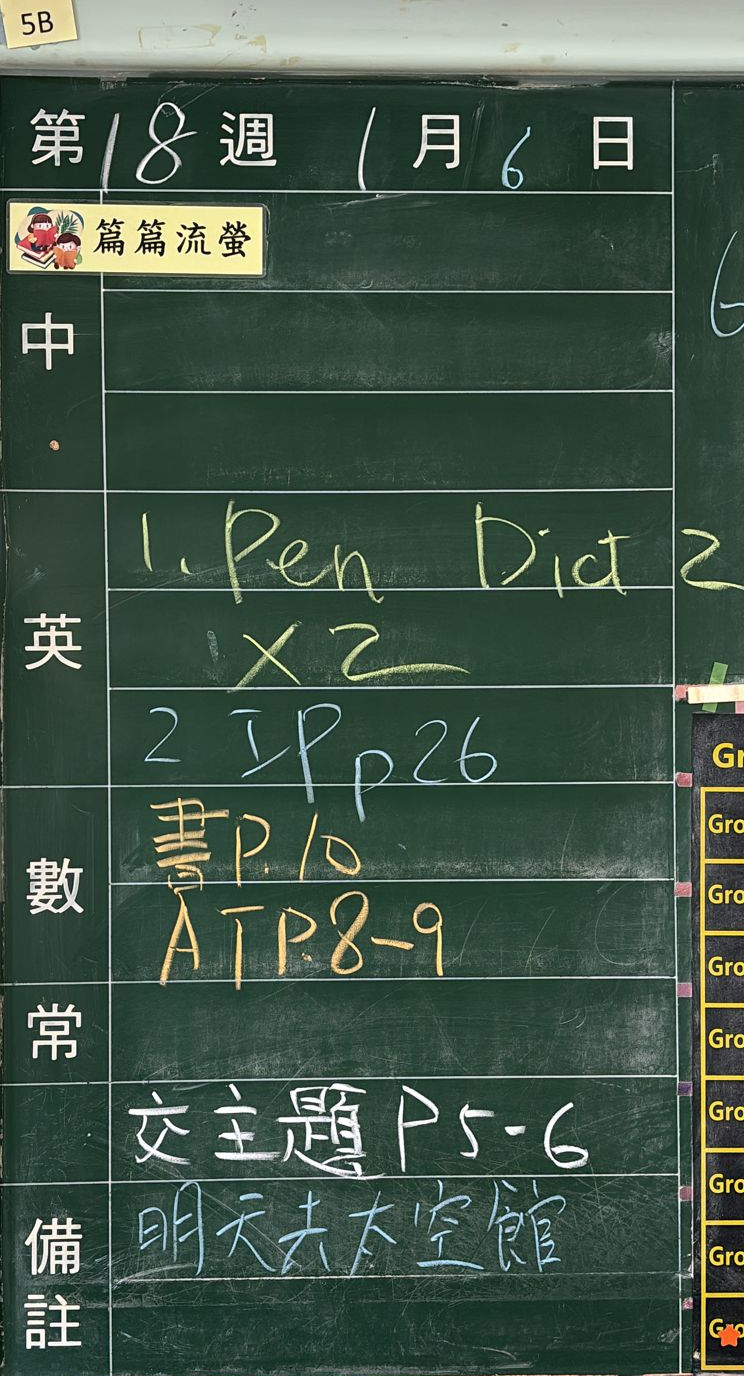 5B
第18週 1月6日
篇篇流螢
中
英
1. Pen Dict 2
x2
2 IP p26
數
書P.10
AT P.8-9
常
交主題 P5-6
備註
明天去太空館
6
Gr
Gro
Gro
Gro
Gro
Gro
Gro
Gro
Gro